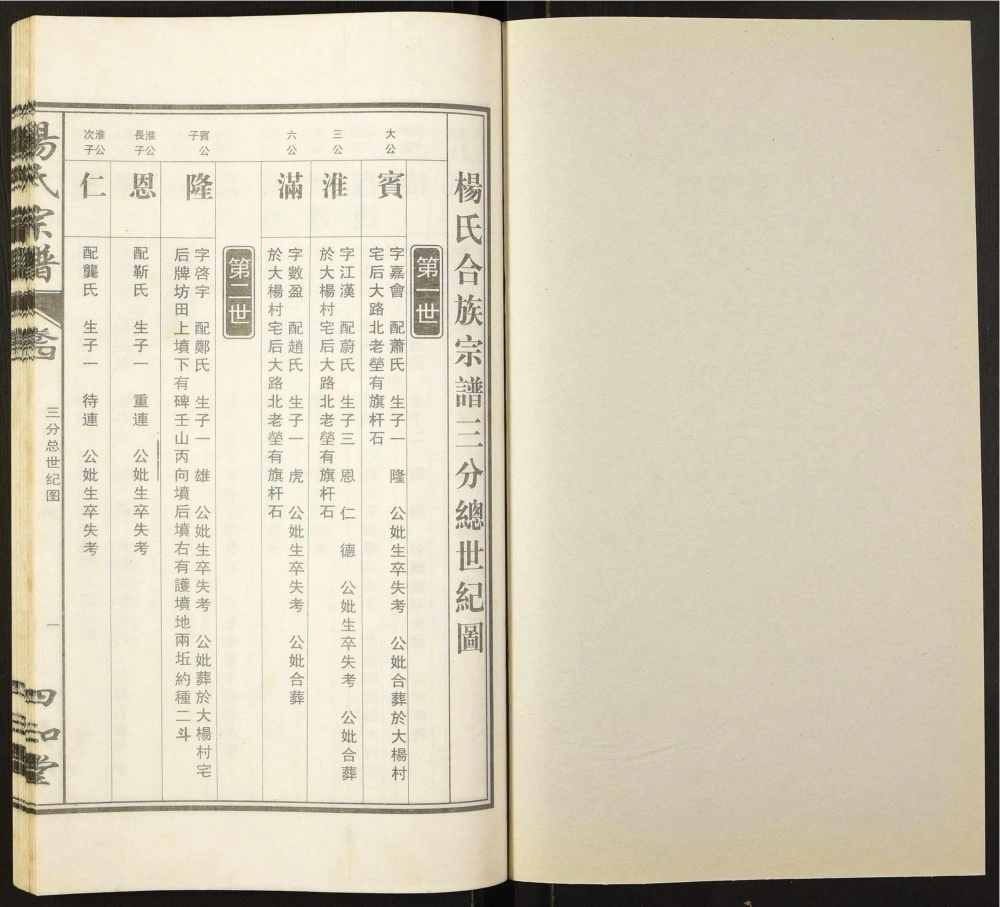 楊氏合族宗譜三分總世紀圖
第一世
大公
賓
字嘉會 配蕭氏 生子一 隆 公妣生卒失考 公妣葬於大楊村
宅后大路北老塋有旗杆石
三公
淮
字江漢 配蔚氏 生子三 恩 仁 德 公妣生卒失考 公妣合葬
於大楊村宅后大路北老塋有旗杆石
六公
滿
字數盈 配趙氏 生子一 虎 公妣生卒失考 公妣合葬
於大楊村宅后大路北老塋有旗杆石
第二世
賓公
子
隆
字啓宇 配鄭氏 生子一 雄 公妣生卒失考 公妣葬於大楊村宅
后牌坊田上墳下有碑壬山丙向墳后墳右有護墳地兩坵約種二斗
淮公
長子
恩
配靳氏 生子一 重連 公妣生卒失考
淮公
次子
仁
配龔氏 生子一 待連 公妣生卒失考
楊氏宗譜
三分总世纪图
一
四知堂